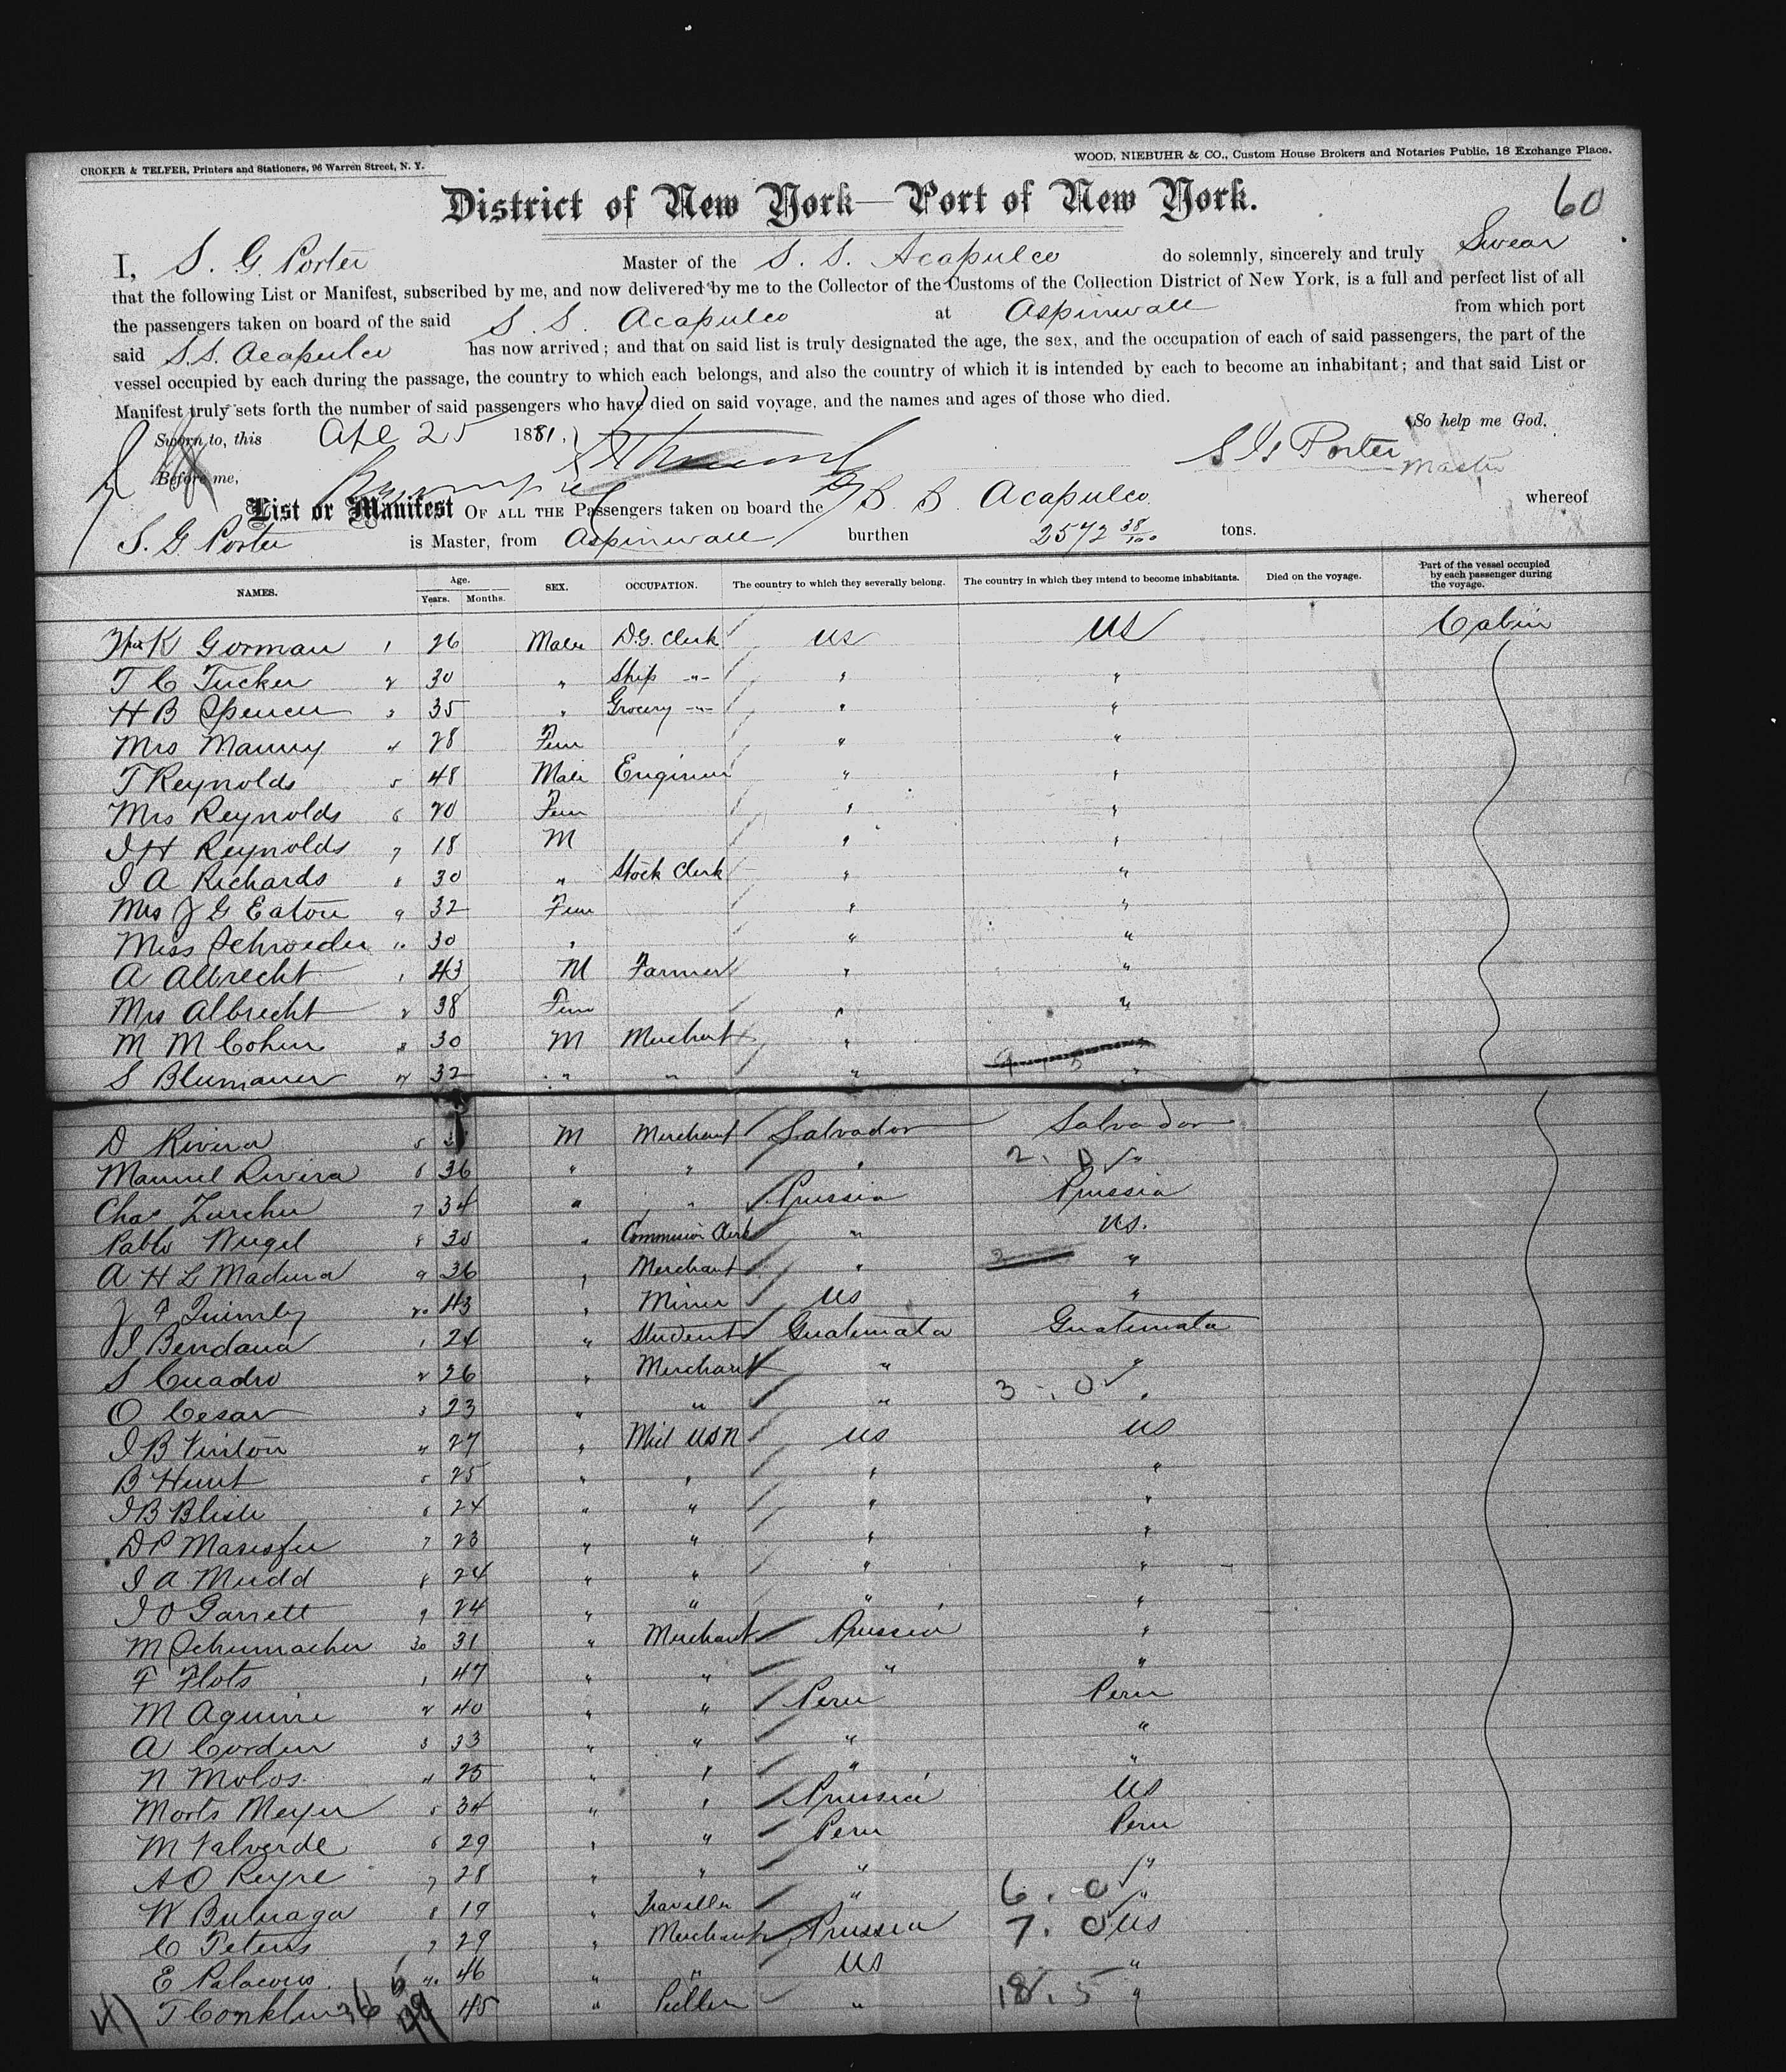 CROKER & TELFER, Printers and Stationers, 96 Warren Street, N. Y.
WOOD, NIEBUHR & CO., Custom House Brokers and Notaries Public, 18 Exchange Place.
60
District of New York—Port of New York.
I, S. G. Porter Master of the S. S. Acapulco do solemnly, sincerely and truly Swear
that the following List or Manifest, subscribed by me, and now delivered by me to the Collector of the Customs of the Collection District of New York, is a full and perfect list of all
the passengers taken on board of the said S. S. Acapulco at Aspinwall from which port
said S.S. Acapulco has now arrived; and that on said list is truly designated the age, the sex, and the occupation of each of said passengers, the part of the
vessel occupied by each during the passage, the country to which each belongs, and also the country of which it is intended by each to become an inhabitant; and that said List or
Manifest truly sets forth the number of said passengers who have died on said voyage, and the names and ages of those who died.
So help me God,
Sworn to, this Apl 25 1881,
S G Porter
Master
Before me,
List or Manifest OF ALL THE Passengers taken on board the S. S. Acapulco whereof
S. G Porter is Master, from Aspinwall burthen 2572 38/100 tons.
NAMES. Age. Years. Months. SEX. OCCUPATION. The country to which they severally belong. The country in which they intend to become inhabitants. Died on the voyage. Part of the vessel occupied by each passenger during the voyage.
K Gorman 1 26 Male D.G. Clerk US US Cabin
T C Tucker 2 30 " Ship -"- " "
H B Spencer 3 35 " Grocery -"- " "
Mrs Manny 4 28 Fem " "
T Reynolds 5 48 Male Engineer " "
Mrs Reynolds 6 20 Fem " "
J H Reynolds 7 18 M " "
J A Richards 8 30 " Stock Clerk " "
Mrs J G Eaton 9 32 Fem " "
Miss Schroeder 10 30 " " "
A Albrecht 1 43 M Farmer " "
Mrs Albrecht 2 38 Fem " "
M M Cohen 3 30 M Merchant " "
S Blumauer 4 32 " " " "
D Rivera 5 M Merchant Salvador Salvador
Manuel Rivera 6 36 " " " 2. 0 "
Chas Zurcher 7 34 " " Prussia Prussia
Pablo 8 30 " Commission Clerk " US.
A H L Madura 9 36 " Merchant " "
J F Quimby 20 43 " Miner US "
J Bendana 1 24 " Student Guatemala Guatemala
S Cuadro 2 26 " Merchant " "
O Cesar 3 23 " " " 3. 0 "
J B Vinton 4 27 " Mid USN US US
B Hunt 5 25 " " " "
J B Blish 6 24 " " " "
D P 7 23 " " " "
J A Mudd 8 24 " " " "
J O Garrett 9 24 " " " "
M Schumacher 30 31 " Merchant Prussia "
F Flots 1 47 " " " "
M Aguirre 2 40 " " Peru Peru
A Corden 3 33 " " " "
N Molos 4 25 " " " "
Morts Meyer 5 34 " " Prussia US
M Valverde 6 29 " " Peru Peru
A O Reyre 7 28 " " " "
W Buluaga 8 19 " Traveller " 6. 0 "
C Peters 9 29 " Merchant Prussia 7. 0 US
E Palacous 40 46 " " US "
41 T Conklin 45 " " 18. 5 "